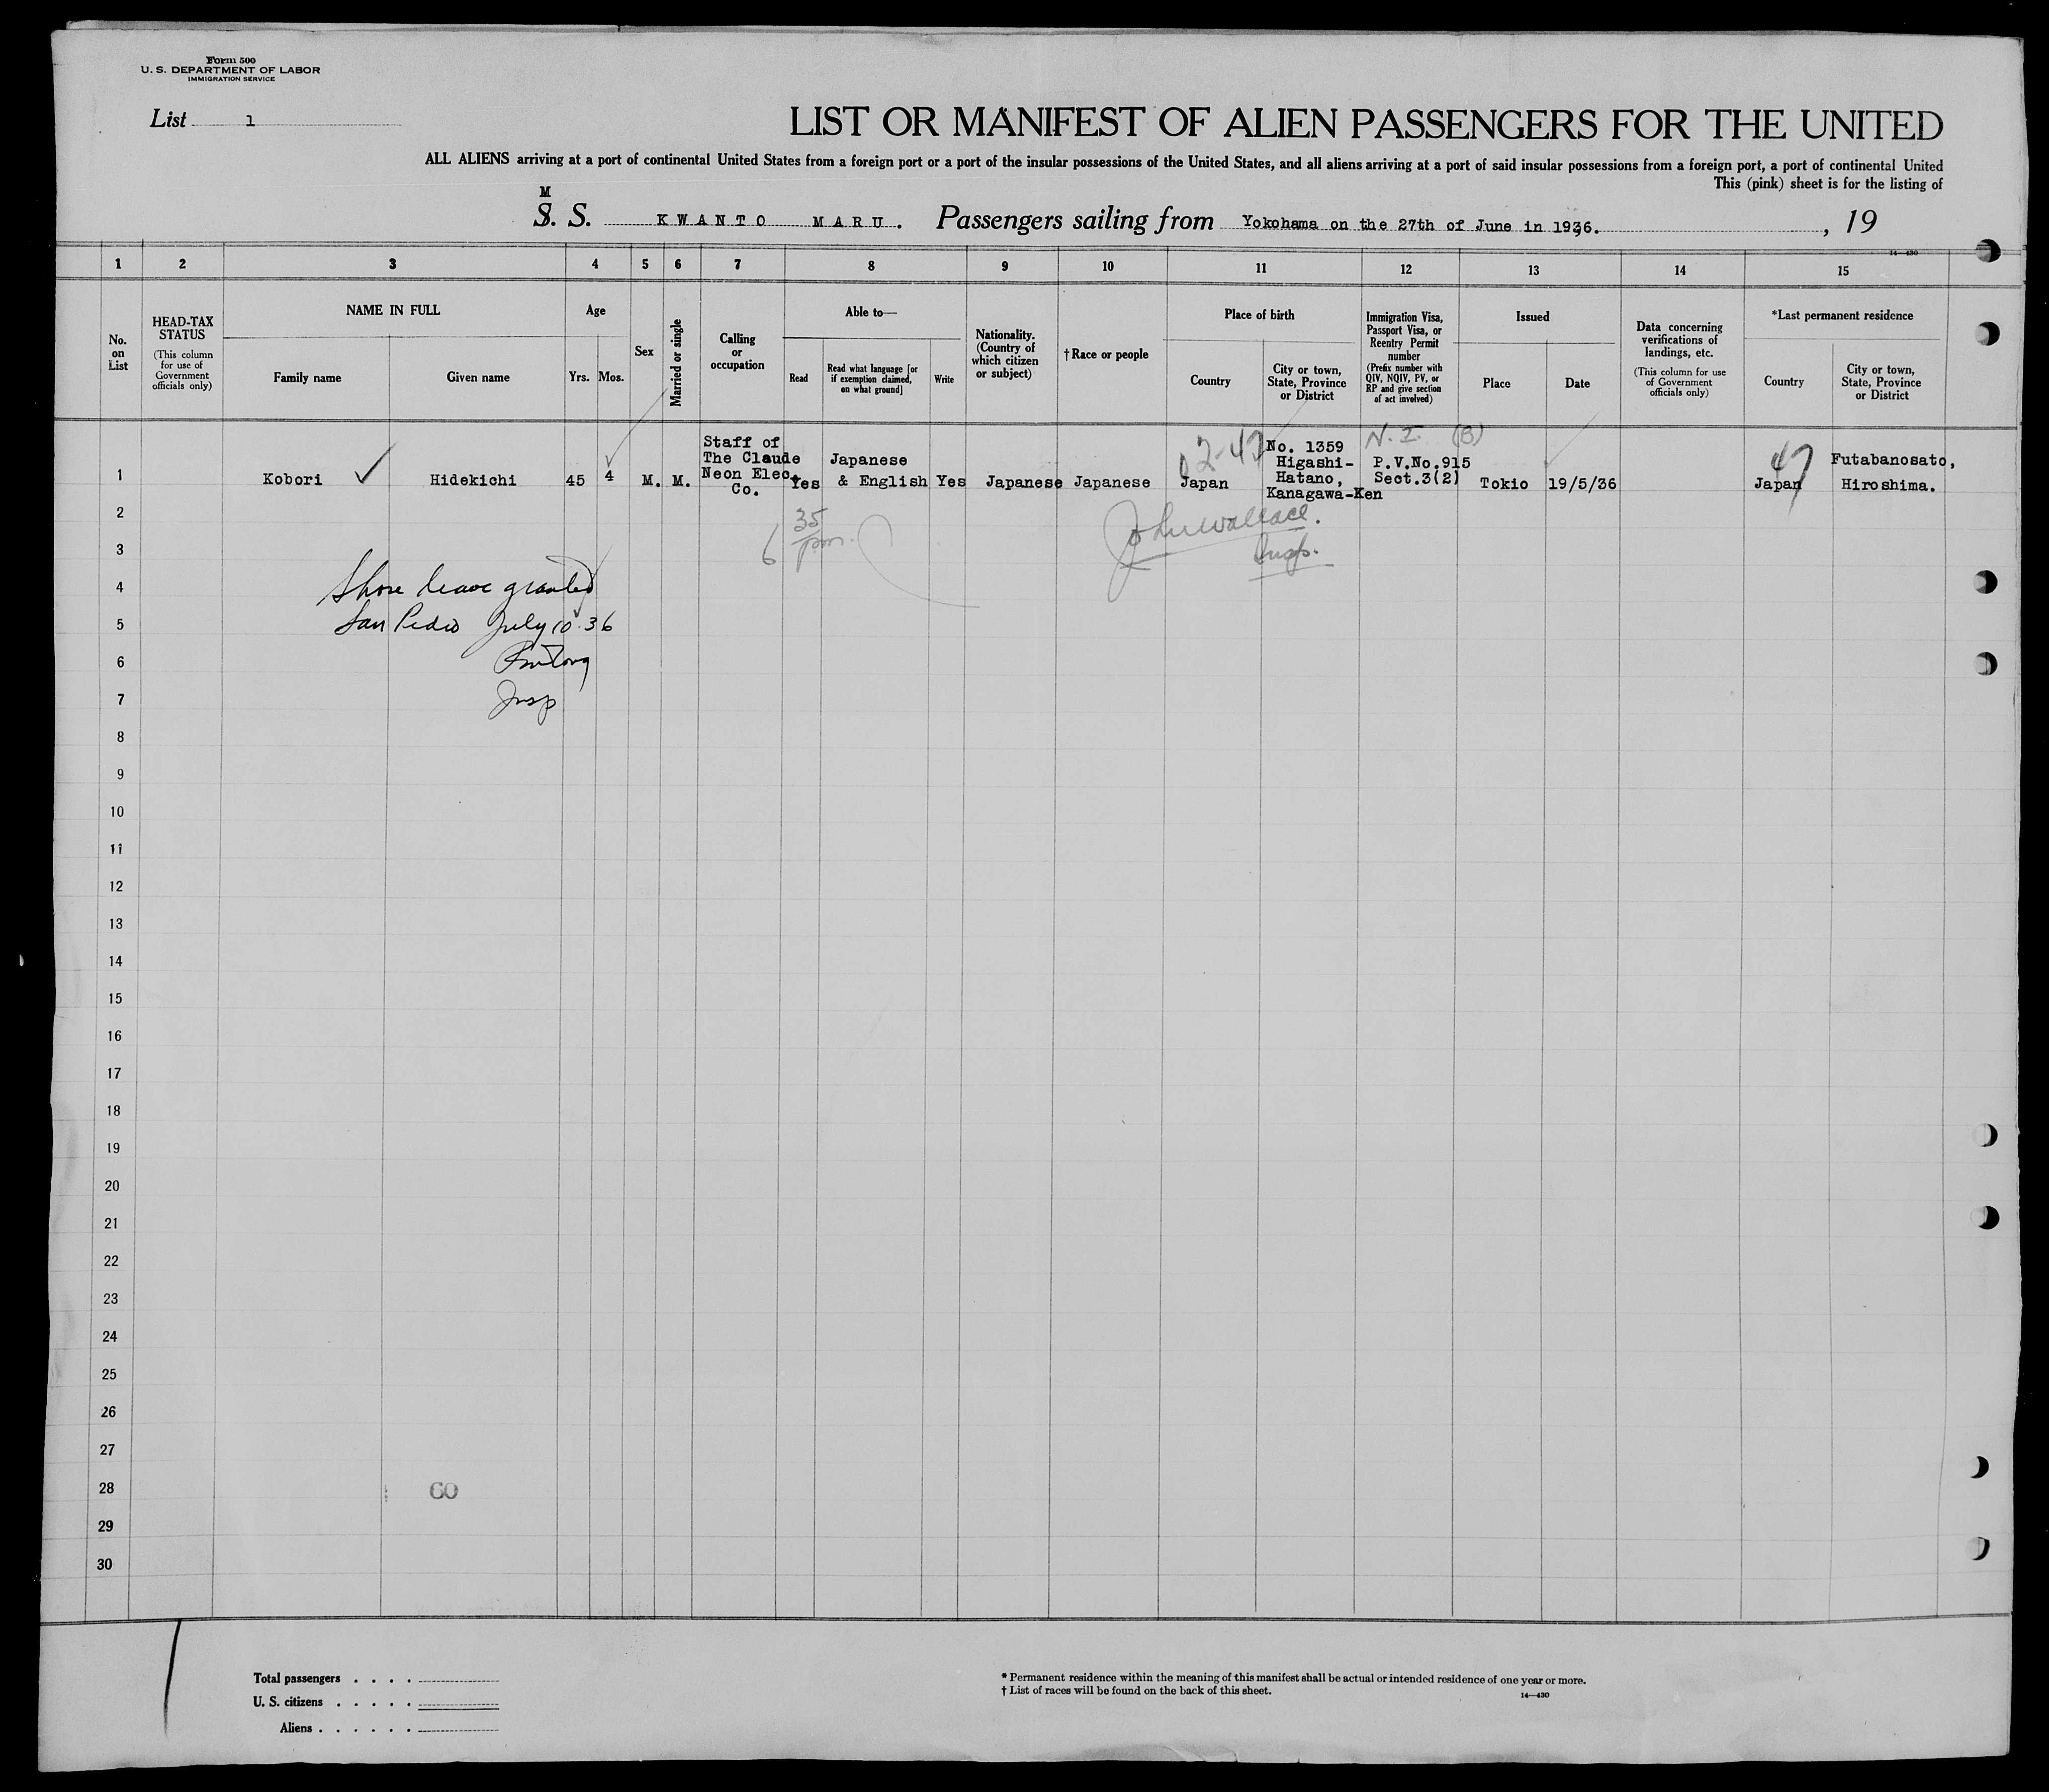 Form 500
U. S. DEPARTMENT OF LABOR
IMMIGRATION SERVICE
List 1
LIST OR MANIFEST OF ALIEN PASSENGERS FOR THE UNITED
ALL ALIENS arriving at a port of continental United States from a foreign port or a port of the insular possessions of the United States, and all aliens arriving at a port of said insular possessions from a foreign port, a port of continental United
This (pink) sheet is for the listing of
M
S. S. KWANTO MARU. Passengers sailing from Yokohama on the 27th of June in 1936. , 19
14—430
1 2 3 4 5 6 7 8 9 10 11 12 13 14 15
No. on List
HEAD-TAX STATUS
(This column for use of Government officials only)
NAME IN FULL
Family name
Given name
Age
Yrs. Mos.
Sex
Married or single
Calling or occupation
Able to—
Read
Read what language [or if exemption claimed, on what ground]
Write
Nationality. (Country of which citizen or subject)
†Race or people
Place of birth
Country
City or town, State, Province or District
Immigration Visa, Passport Visa, or Reentry Permit number
(Prefix number with QIV, NQIV, PV, or RP and give section of act involved)
Issued
Place
Date
Data concerning verifications of landings, etc.
(This column for use of Government officials only)
*Last permanent residence
Country
City or town, State, Province or District
1
Kobori
Hidekichi
45
4
M.
M.
Staff of
The Claude
Neon Elec.
Co.
Yes
Japanese
& English
Yes
Japanese
Japanese
Japan
No. 1359
Higashi-
Hatano,
Kanagawa-Ken
N. I. (B)
P.V.No.915
Sect.3(2)
Tokio
19/5/36
47
Japan
Futabanosato,
Hiroshima.
2
6 35
pm.
John Wallace.
Insp.
3
4
Shore leave granted
5
San Pedro July 10 36
6
7
Insp
8
9
10
11
12
13
14
15
16
17
18
19
20
21
22
23
24
25
26
27
28
60
29
30
Total passengers . . . .
U. S. citizens . . . . .
Aliens . . . . . .
* Permanent residence within the meaning of this manifest shall be actual or intended residence of one year or more.
† List of races will be found on the back of this sheet.
14—430